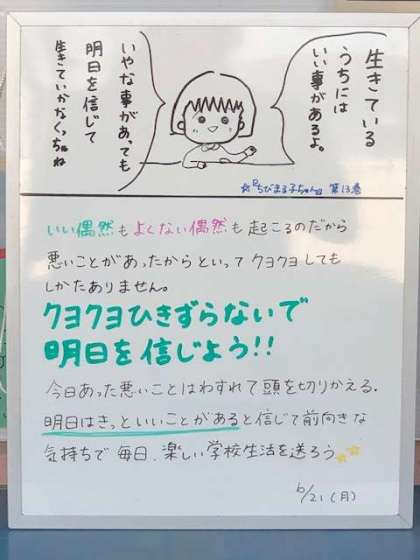 生きている
うちには
いい事があるよ。
いやな事があっても
明日を信じて
生きていかなくっちゃね
☆『ちびまる子ちゃん』 第13巻
いい偶然もよくない偶然も起こるのだから
悪いことがあったからといってクヨクヨしても
しかたありません。
クヨクヨひきずらないで
明日を信じよう!!
今日あった悪いことはわすれて頭を切りかえる.
明日はきっといいことがあると信じて前向きな
気持ちで毎日、楽しい学校生活を送ろう☆☆
6/21(月)